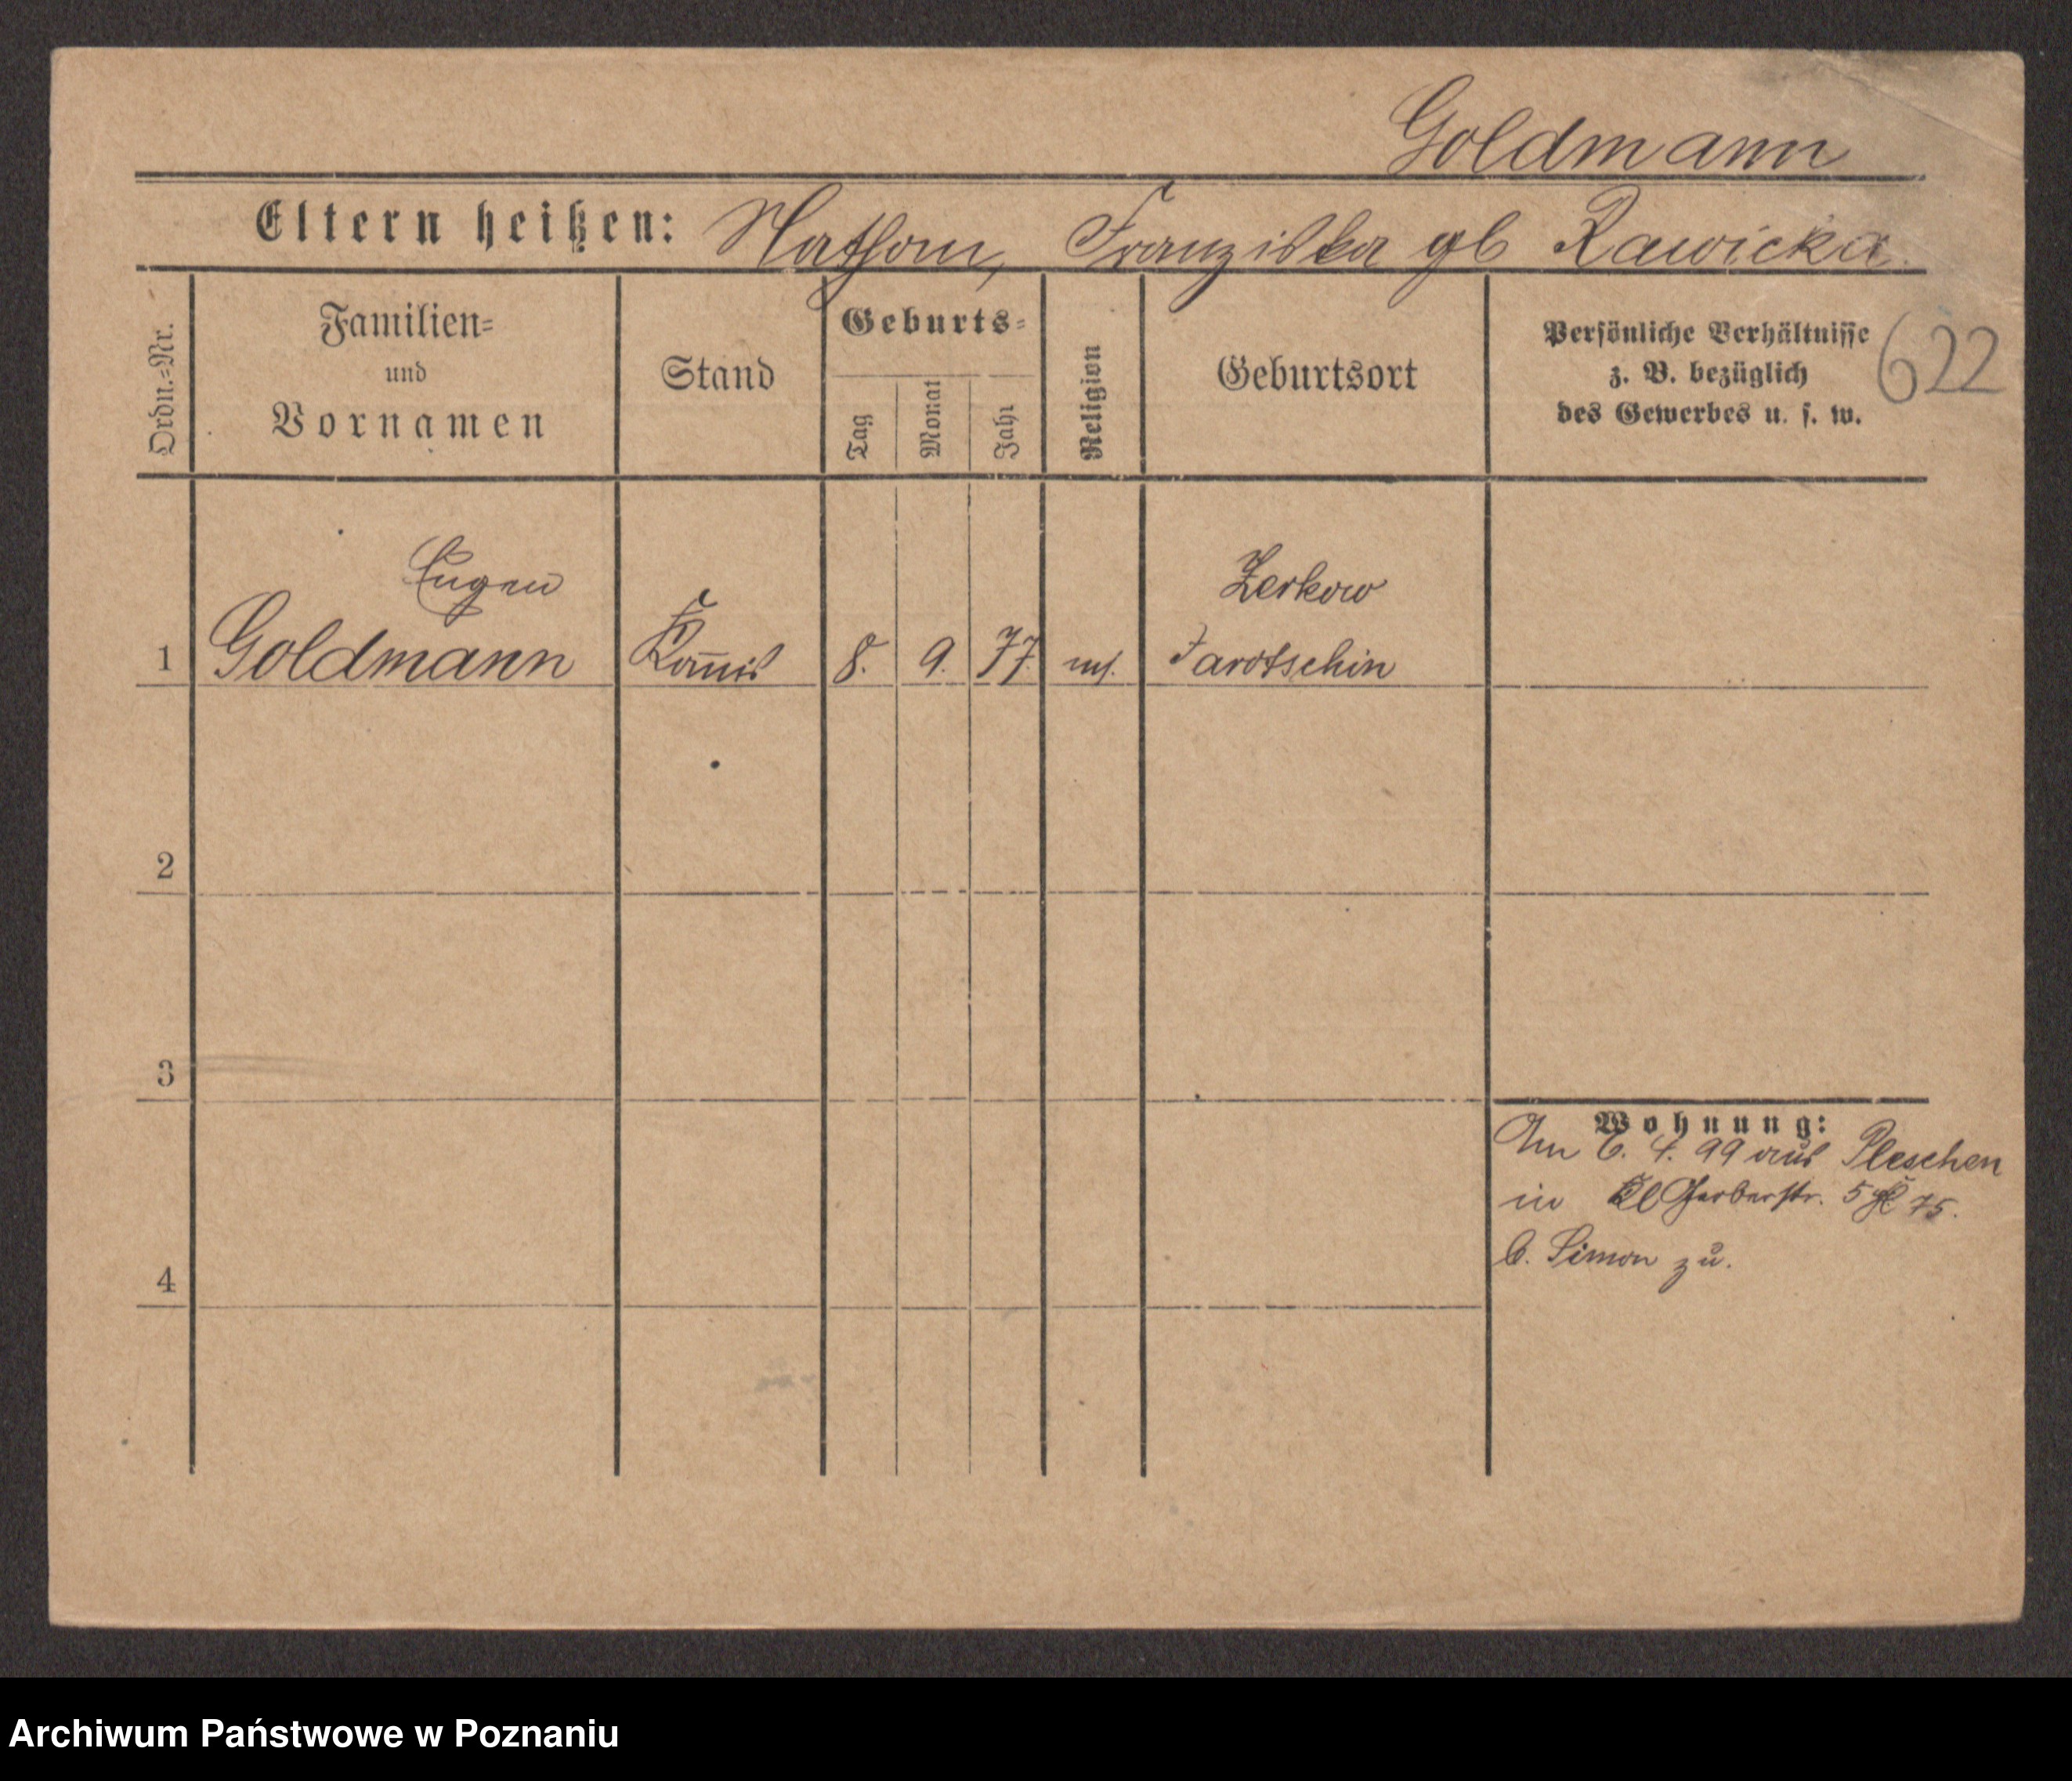 Goldmann
Eltern heißen: Nathan, Franziska gb Rawicka
Ordn.=Nr.
Familien=
und
Vornamen
Stand
Geburts=
Tag
Monat
Jahr
Religion
Geburtsort
Persönliche Verhältnisse
z. B. bezüglich
des Gewerbes u. s. w.
622
Eugen
Zerkow
1 Goldmann Kom̅is 8. 9. 77. Jarotschin
2
3
4
Wohnung:
Am 6. 4. 99 aus Pleschen
in Kl Gerberstr. 5 75.
b. Simon zu.
Archiwum Państwowe w Poznaniu